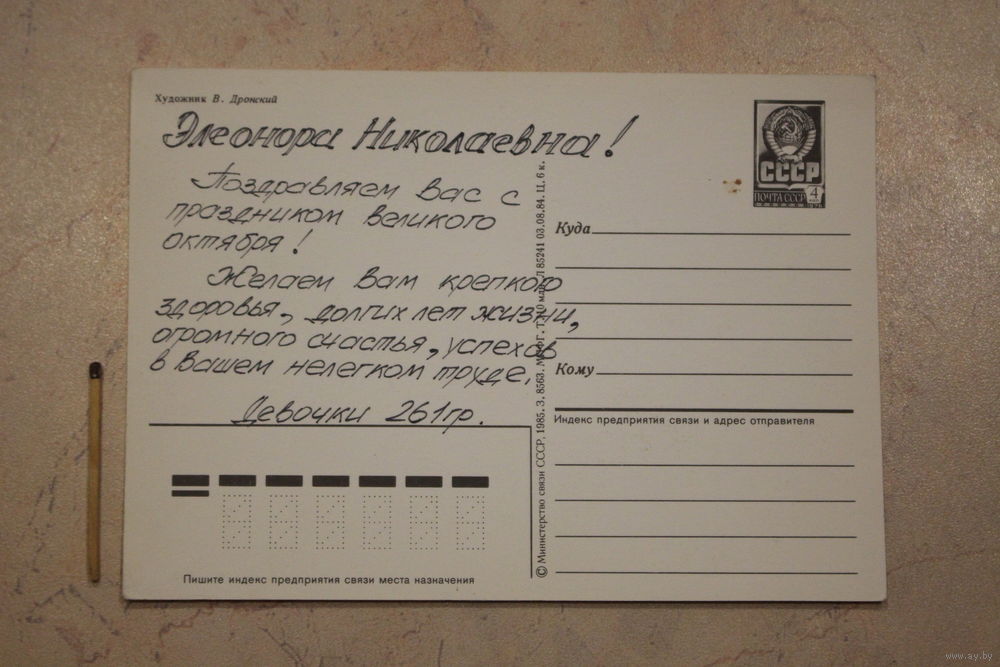 Художник В. Дронский
Элеонора Николаевна!
Поздравляем Вас с
праздником великого
октября!
Желаем Вам крепкого
здоровья, долгих лет жизни,
огромного счастья, успехов
в Вашем нелегком труде.
Девочки 261гр.
Пишите индекс предприятия связи места назначения
© Министерство связи СССР, 1985. З. 8563. 85241 03.08.84. Ц. 6 к.
СССР
ПОЧТА СССР
4
Куда
Кому
Индекс предприятия связи и адрес отправителя
www.ay.by